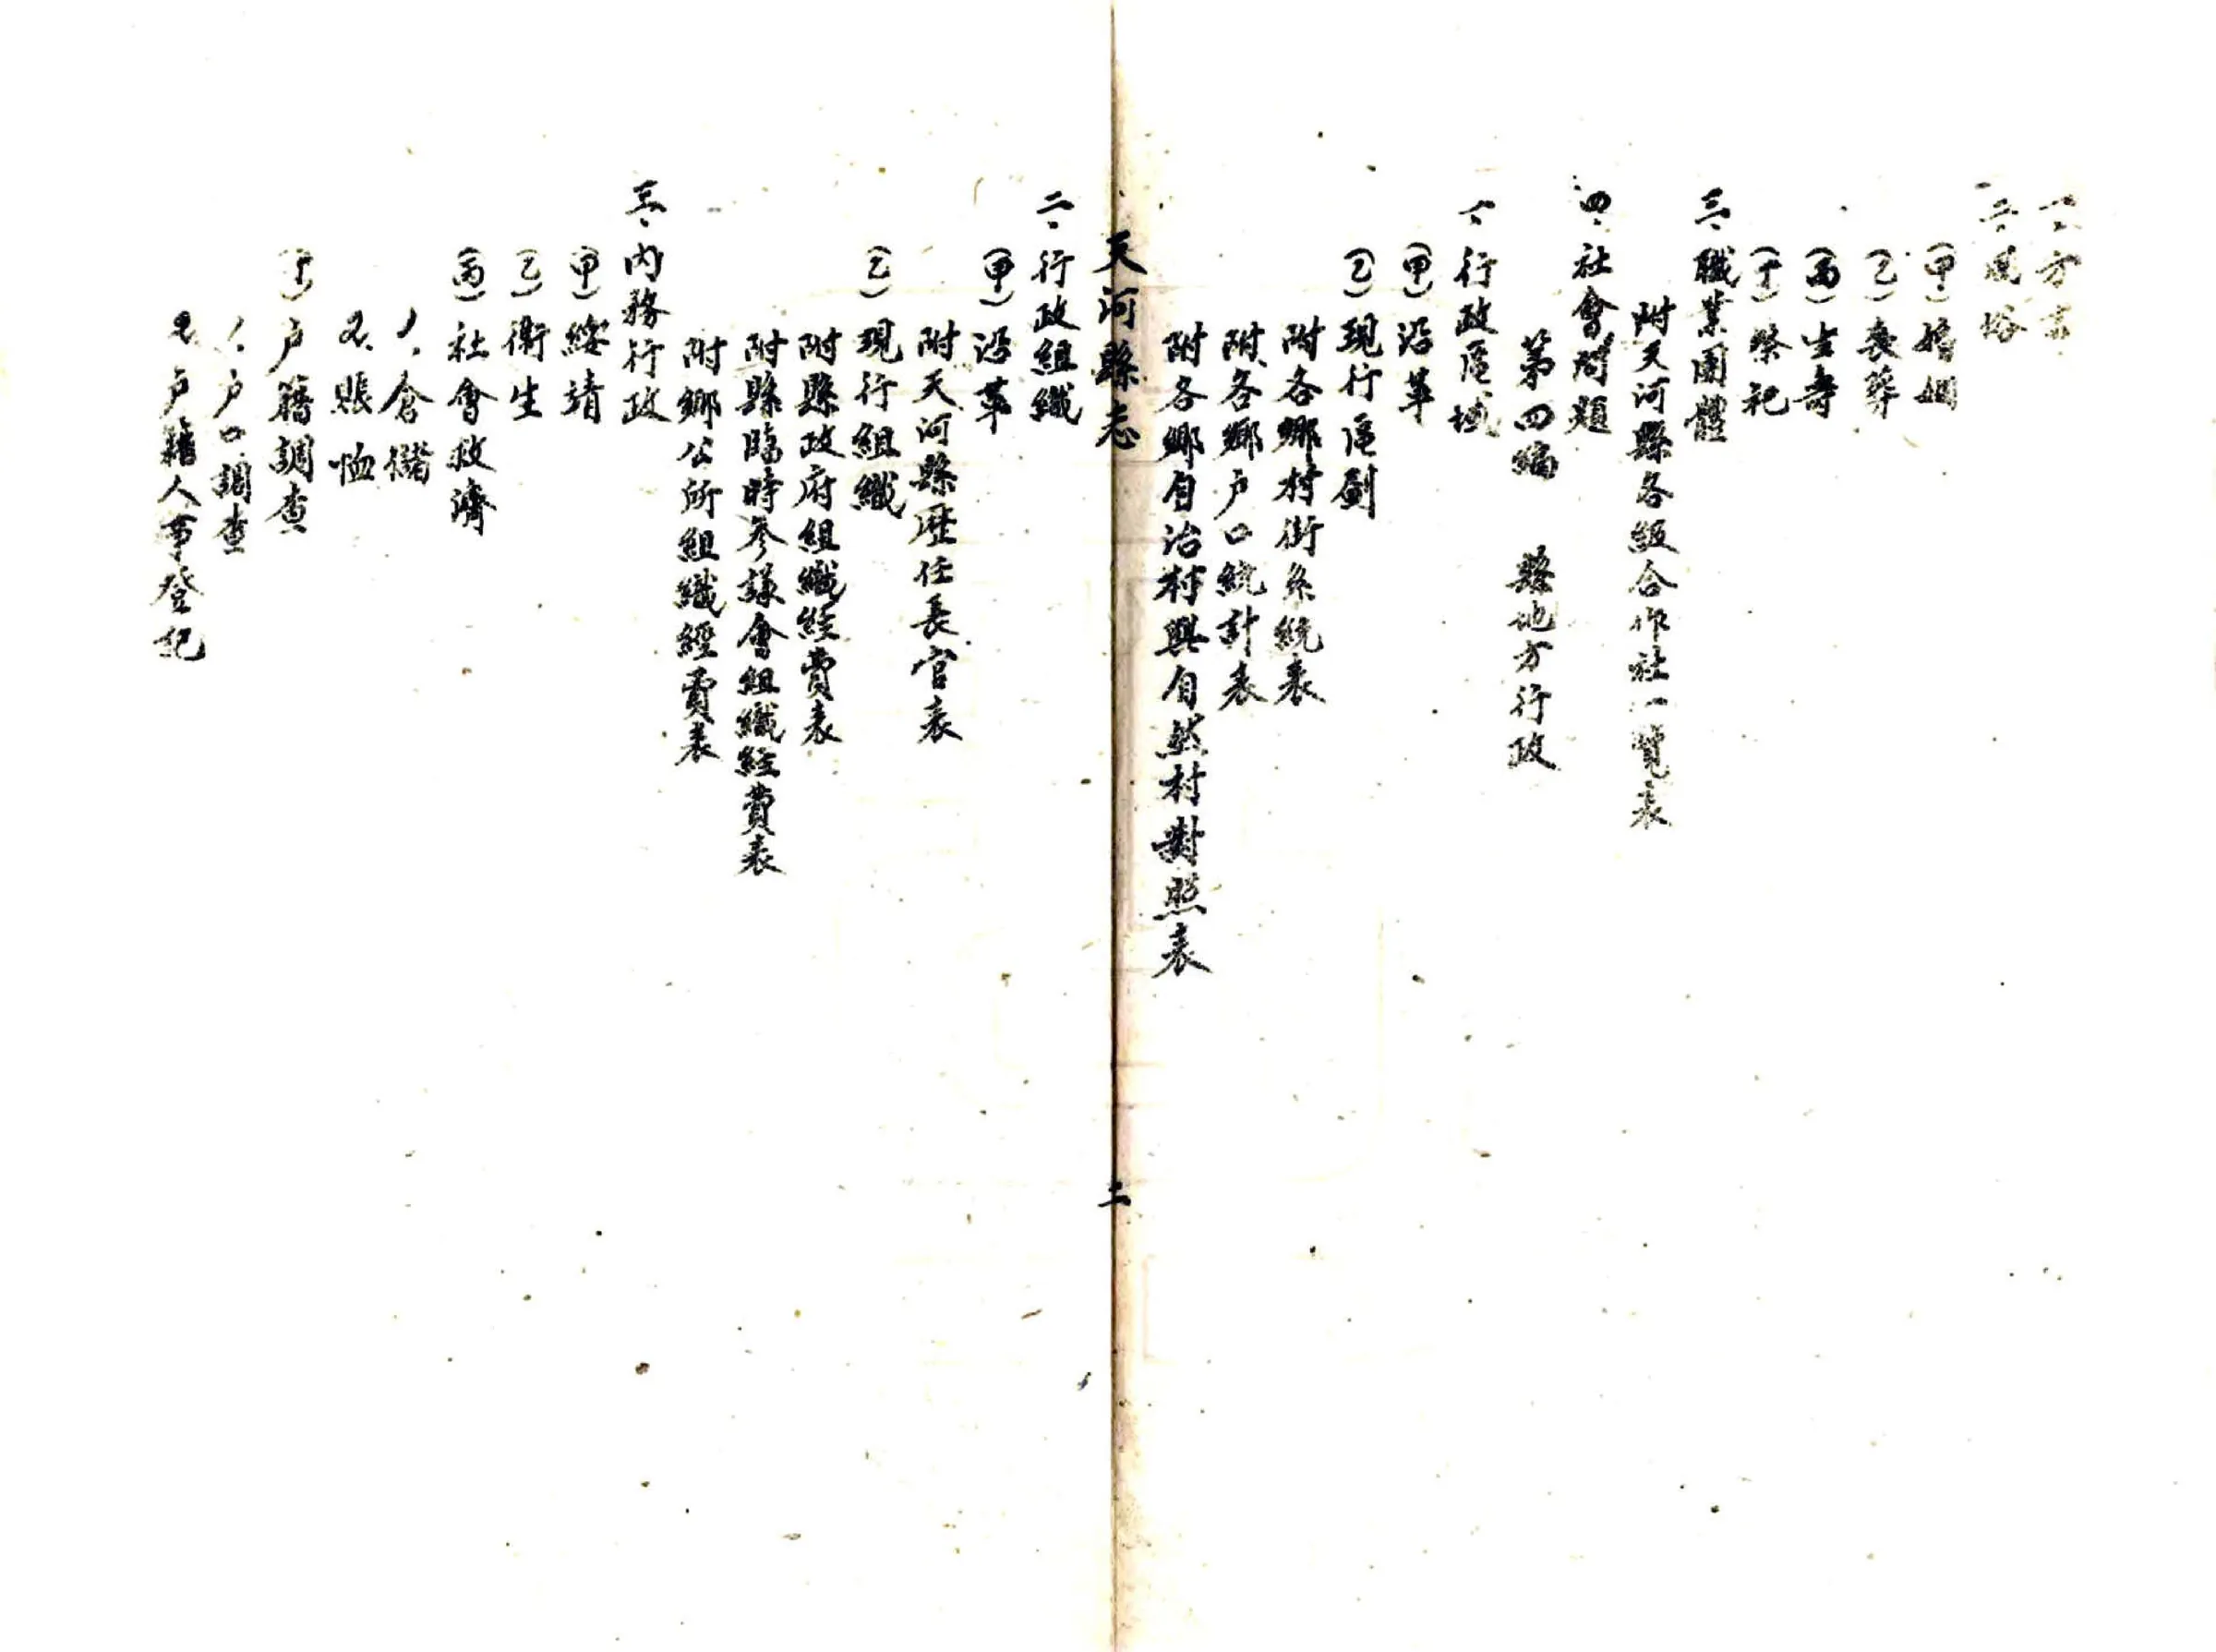 一、方言
二、風俗
(甲)婚姻
(乙)喪葬
(丙)生壽
(丁)祭祀
三、職業團體
附天河縣各級合作社一覽表
四、社會問題
第四編　縣地方行政
一、行政區域
(甲)沿革
(乙)現行區劃
附各鄉村街系統表
附各鄉户口統計表
附各鄉自治村與自然村對照表
天河縣志　二
二、行政組織
(甲)沿革
附天河縣歷任長官表
(乙)現行組織
附縣政府組織經費表
附縣臨時參議會組織經費表
附鄉公所組織經費表
三、內務行政
(甲)綏靖
(乙)衛生
(丙)社會救濟
1.倉儲
2.賑恤
(丁)户籍調查
1.户口調查
2.户籍人事登記